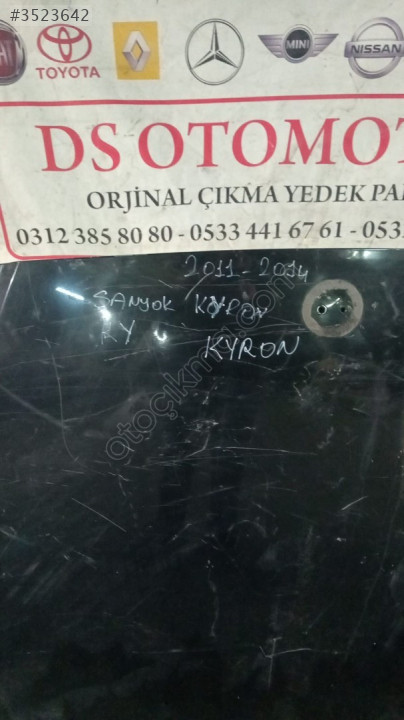 #3523642
TOYOTA
MINI
NISSAN
DS OTOMOT
ORJİNAL ÇIKMA YEDEK PA
0312 385 80 80 - 0533 441 67 61 - 053
2011-2014
SANYOK
KYRON
otoçıkma.com